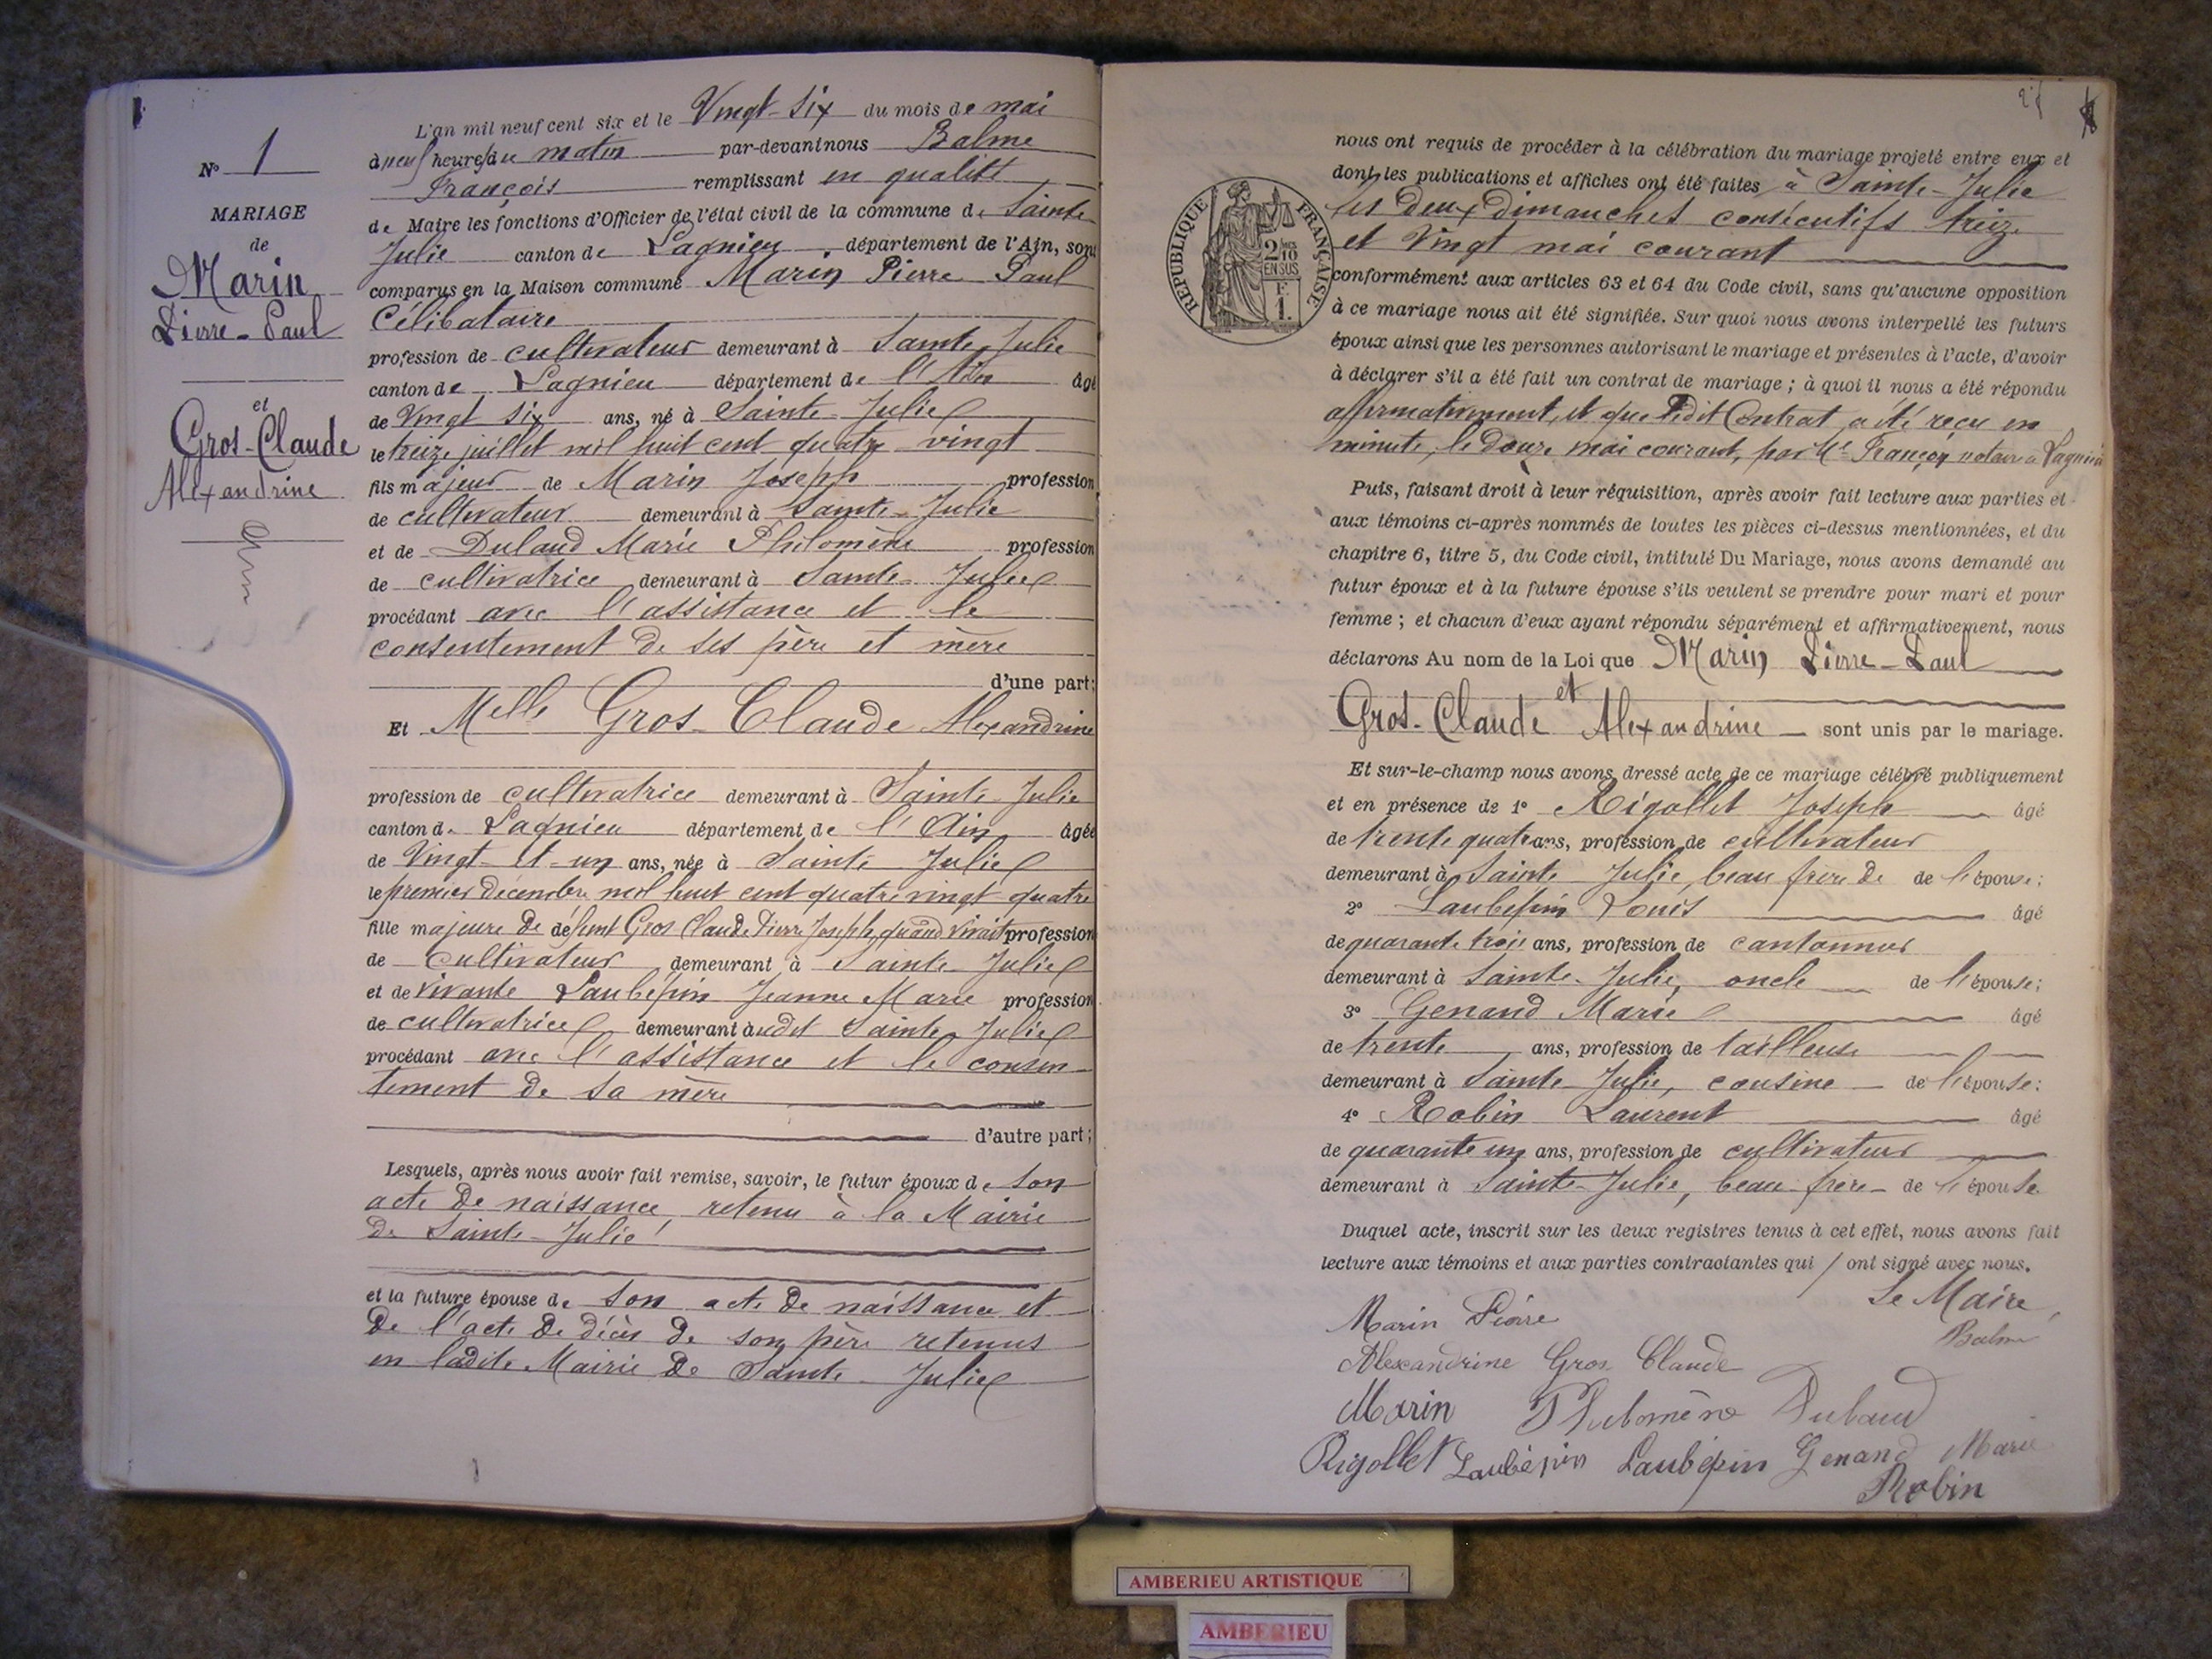 N° 1
MARIAGE
de
Marin
Pierre-Paul
et
Gros-Claude
Alexandrine
L'an mil neuf cent six et le Vingt-six du mois de mai
à neuf heures du matin par-devant nous Balme
François remplissant en qualité
de Maire les fonctions d'Officier de l'état civil de la commune de Sainte-
Julie canton de Lagnieu département de l'Ain, sont
comparus en la Maison commune Marin Pierre Paul
Célibataire
profession de cultivateur demeurant à Sainte-Julie
canton de Lagnieu département de l'Ain âgé
de Vingt six ans, né à Sainte-Julie
le treize juillet mil huit cent quatre-vingt
fils majeur de Marin Joseph profession
de cultivateur demeurant à Sainte-Julie
et de Dubaud Marie Philomène profession
de cultivatrice demeurant à Sainte-Julie
procédant avec l'assistance et le
consentement de ses père et mère
d'une part;
Et Melle Gros-Claude Alexandrine
profession de cultivatrice demeurant à Sainte-Julie
canton de Lagnieu département de l'Ain âgée
de Vingt-et-un ans, née à Sainte Julie
le premier décembre mil huit cent quatre vingt-quatre
fille majeure de défunt Gros Claude Pierre Joseph, quand vivait profession
de cultivateur demeurant à Sainte-Julie
et de vivante Laubépin Jeanne Marie profession
de cultivatrice demeurant audit Sainte-Julie
procédant avec l'assistance et le consen-
tement de sa mère
d'autre part;
Lesquels, après nous avoir fait remise, savoir, le futur époux de son
acte de naissance, retenu à la Mairie
de Sainte-Julie
et la future épouse de son acte de naissance et
de l'acte de décès de son père retenus
en ladite Mairie de Sainte-Julie
nous ont requis de procéder à la célébration du mariage projeté entre eux et
dont les publications et affiches ont été faites, à Sainte-Julie
les deux dimanches consécutifs treize
et vingt mai courant
RÉPUBLIQUE FRANÇAISE
2/10
EN SUS
F.
1.
conformément aux articles 63 et 64 du Code civil, sans qu'aucune opposition
à ce mariage nous ait été signifiée. Sur quoi nous avons interpellé les futurs
époux ainsi que les personnes autorisant le mariage et présentes à l'acte, d'avoir
à déclarer s'il a été fait un contrat de mariage ; à quoi il nous a été répondu
affirmativement, et que ledit Contrat a été reçu en
minute, le douze mai courant, par Me Françon notaire à Lagnieu
Puis, faisant droit à leur réquisition, après avoir fait lecture aux parties et
aux témoins ci-après nommés de toutes les pièces ci-dessus mentionnées, et du
chapitre 6, titre 5, du Code civil, intitulé Du Mariage, nous avons demandé au
futur époux et à la future épouse s'ils veulent se prendre pour mari et pour
femme ; et chacun d'eux ayant répondu séparément et affirmativement, nous
déclarons Au nom de la Loi que Marin Pierre-Paul
et
Gros-Claude Alexandrine sont unis par le mariage.
Et sur-le-champ nous avons dressé acte de ce mariage célébré publiquement
et en présence de 1° Rigollet Joseph âgé
de trente quatre ans, profession de cultivateur
demeurant à Sainte Julie, beau frère de de l'épouse;
2° Laubépin Louis âgé
de quarante trois ans, profession de cantonnier
demeurant à Sainte-Julie, oncle de l'épouse;
3° Genand Marie âgé
de trente ans, profession de tailleuse
demeurant à Sainte-Julie, cousine de l'épouse;
4° Robin Laurent âgé
de quarante un ans, profession de cultivateur
demeurant à Sainte-Julie, beau-frère de l'épouse
Duquel acte, inscrit sur les deux registres tenus à cet effet, nous avons fait
lecture aux témoins et aux parties contractantes qui / ont signé avec nous.
Le Maire,
Marin Pierre
Balme
Alexandrine Gros Claude
Marin Philomène Dubaud
Rigollet Laubépin Laubépin Genand Marie
Robin
AMBERIEU ARTISTIQUE
AMBERIEU